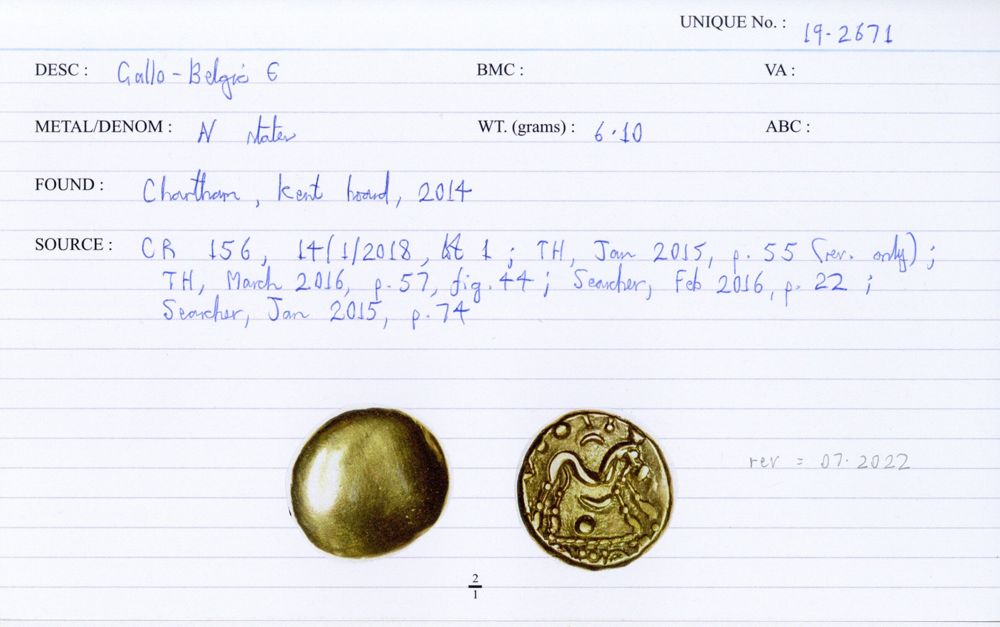 UNIQUE No. : 19-2671
DESC : Gallo-Belgic E BMC : VA :
METAL/DENOM : N stater WT. (grams) : 6.10 ABC :
FOUND : Chartham, Kent hoard, 2014
SOURCE : CR 156, 14/1/2018, lot 1 ; TH, Jan 2015, p. 55 (rev. only) ;
TH, March 2016, p. 57, fig. 44 ; Searcher, Feb 2016, p. 22 ;
Searcher, Jan 2015, p. 74
rev = 07.2022
2
1